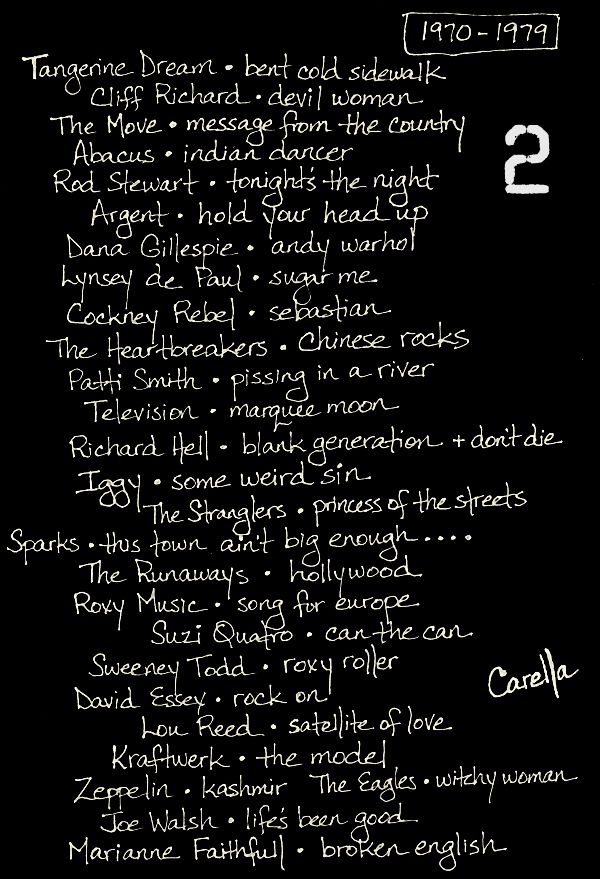 1970-1979
Tangerine Dream • bent cold sidewalk
Cliff Richard • devil woman
The Move • message from the country
2
Abacus • indian dancer
Rod Stewart • tonight's the night
Argent • hold your head up
Dana Gillespie • andy warhol
Lynsey de Paul • sugar me
Cockney Rebel • sebastian
The Heartbreakers • Chinese rocks
Patti Smith • pissing in a river
Television • marquee moon
Richard Hell • blank generation + don't die
Iggy • some weird sin
The Stranglers • princess of the streets
Sparks • this town ain't big enough....
The Runaways • hollywood
Roxy Music • song for europe
Suzi Quatro • can the can
Sweeney Todd • roxy roller
Carella
David Essex • rock on
Lou Reed • satellite of love
Kraftwerk • the model
Zeppelin • kashmir The Eagles • witchy woman
Joe Walsh • life's been good
Marianne Faithfull • broken english